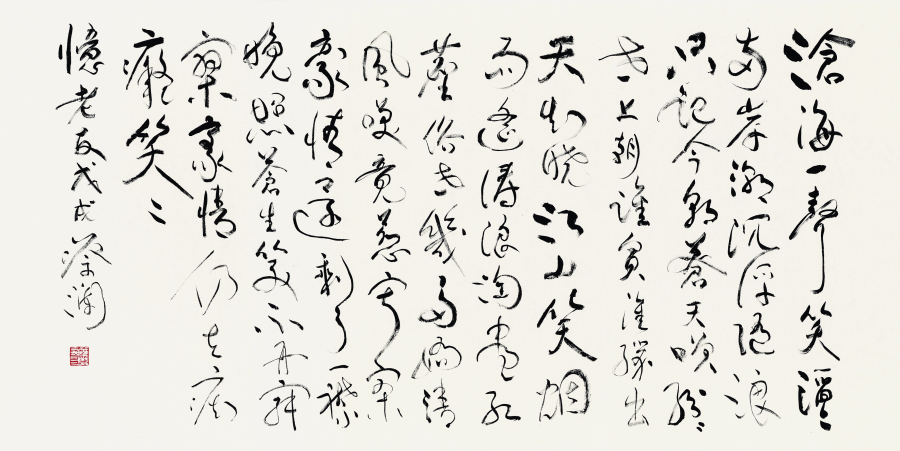 滄海一聲笑滔〻
兩岸潮沉浮隨浪
只記今朝蒼天笑紛〻
世上潮誰負誰勝出
天知曉江山笑煙
雨遙濤浪淘盡紅
塵俗世幾多嬌清
風笑竟惹寂寥
豪情還剩了一襟
晚照蒼生笑不再寂
寥豪情仍在癡
癡笑〻
憶老友戊戌蔡瀾